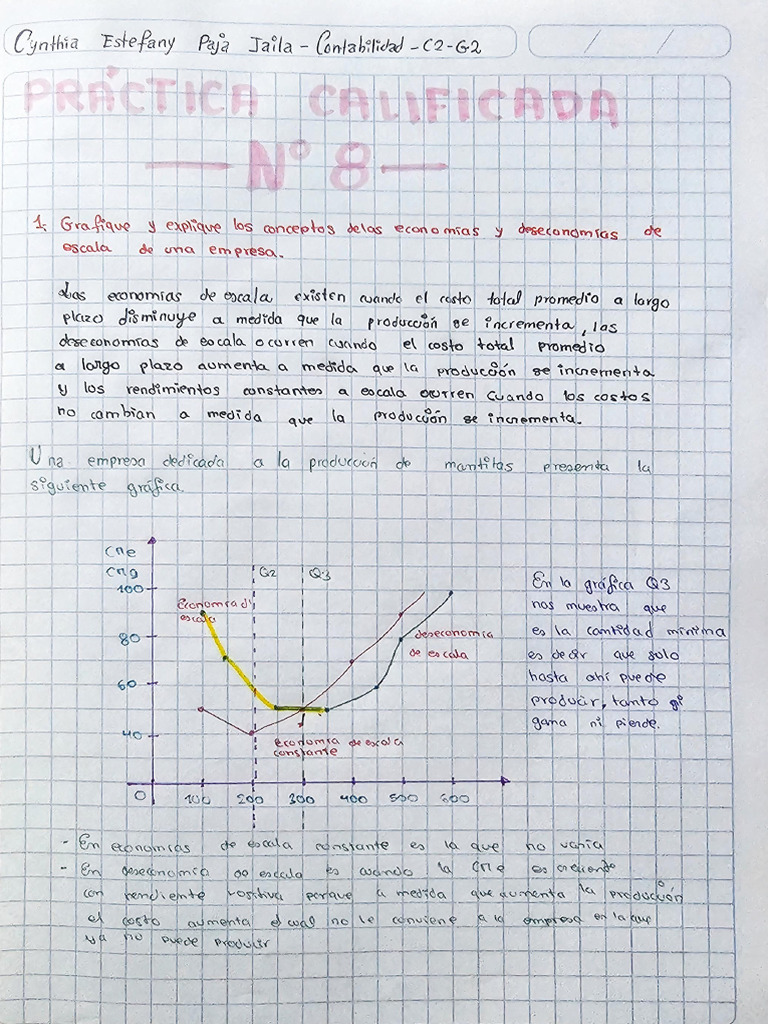 Cynthia Estefany Paja Jaila - Contabilidad - C2 - G2
PRÁCTICA CALIFICADA
N° 8
1. Grafique y explique los conceptos delas economías y deseconomías de
escala de una empresa.
Las economías de escala existen cuando el costo total promedio a largo
plazo disminuye a medida que la producción se incrementa, las
deseconomías de escala ocurren cuando el costo total promedio
a largo plazo aumenta a medida que la producción se incrementa
y los rendimientos constantes a escala ocurren cuando los costos
no cambian a medida que la producción se incrementa.
Una empresa dedicada a la producción de mantitas presenta la
siguiente gráfica.
Cme
Cmg
Q2
Q3
100
80
60
40
0 100 200 300 400 500 600
economía d
escala
deseconomia
de escala
economia de escala
constante
En la gráfica Q3
nos muestra que
es la cantidad minima
es decir que solo
hasta ahí puede
producir, tanto ni
gana ni pierde.
- En economías de escala constante es la que no varia
- En deseconomia de escala es cuando la Cme es creciente
con pendiente Positiva porque a medida que aumenta la producción
el costo aumenta el cual no le conviene a la empresa en la que
ya no puede producir